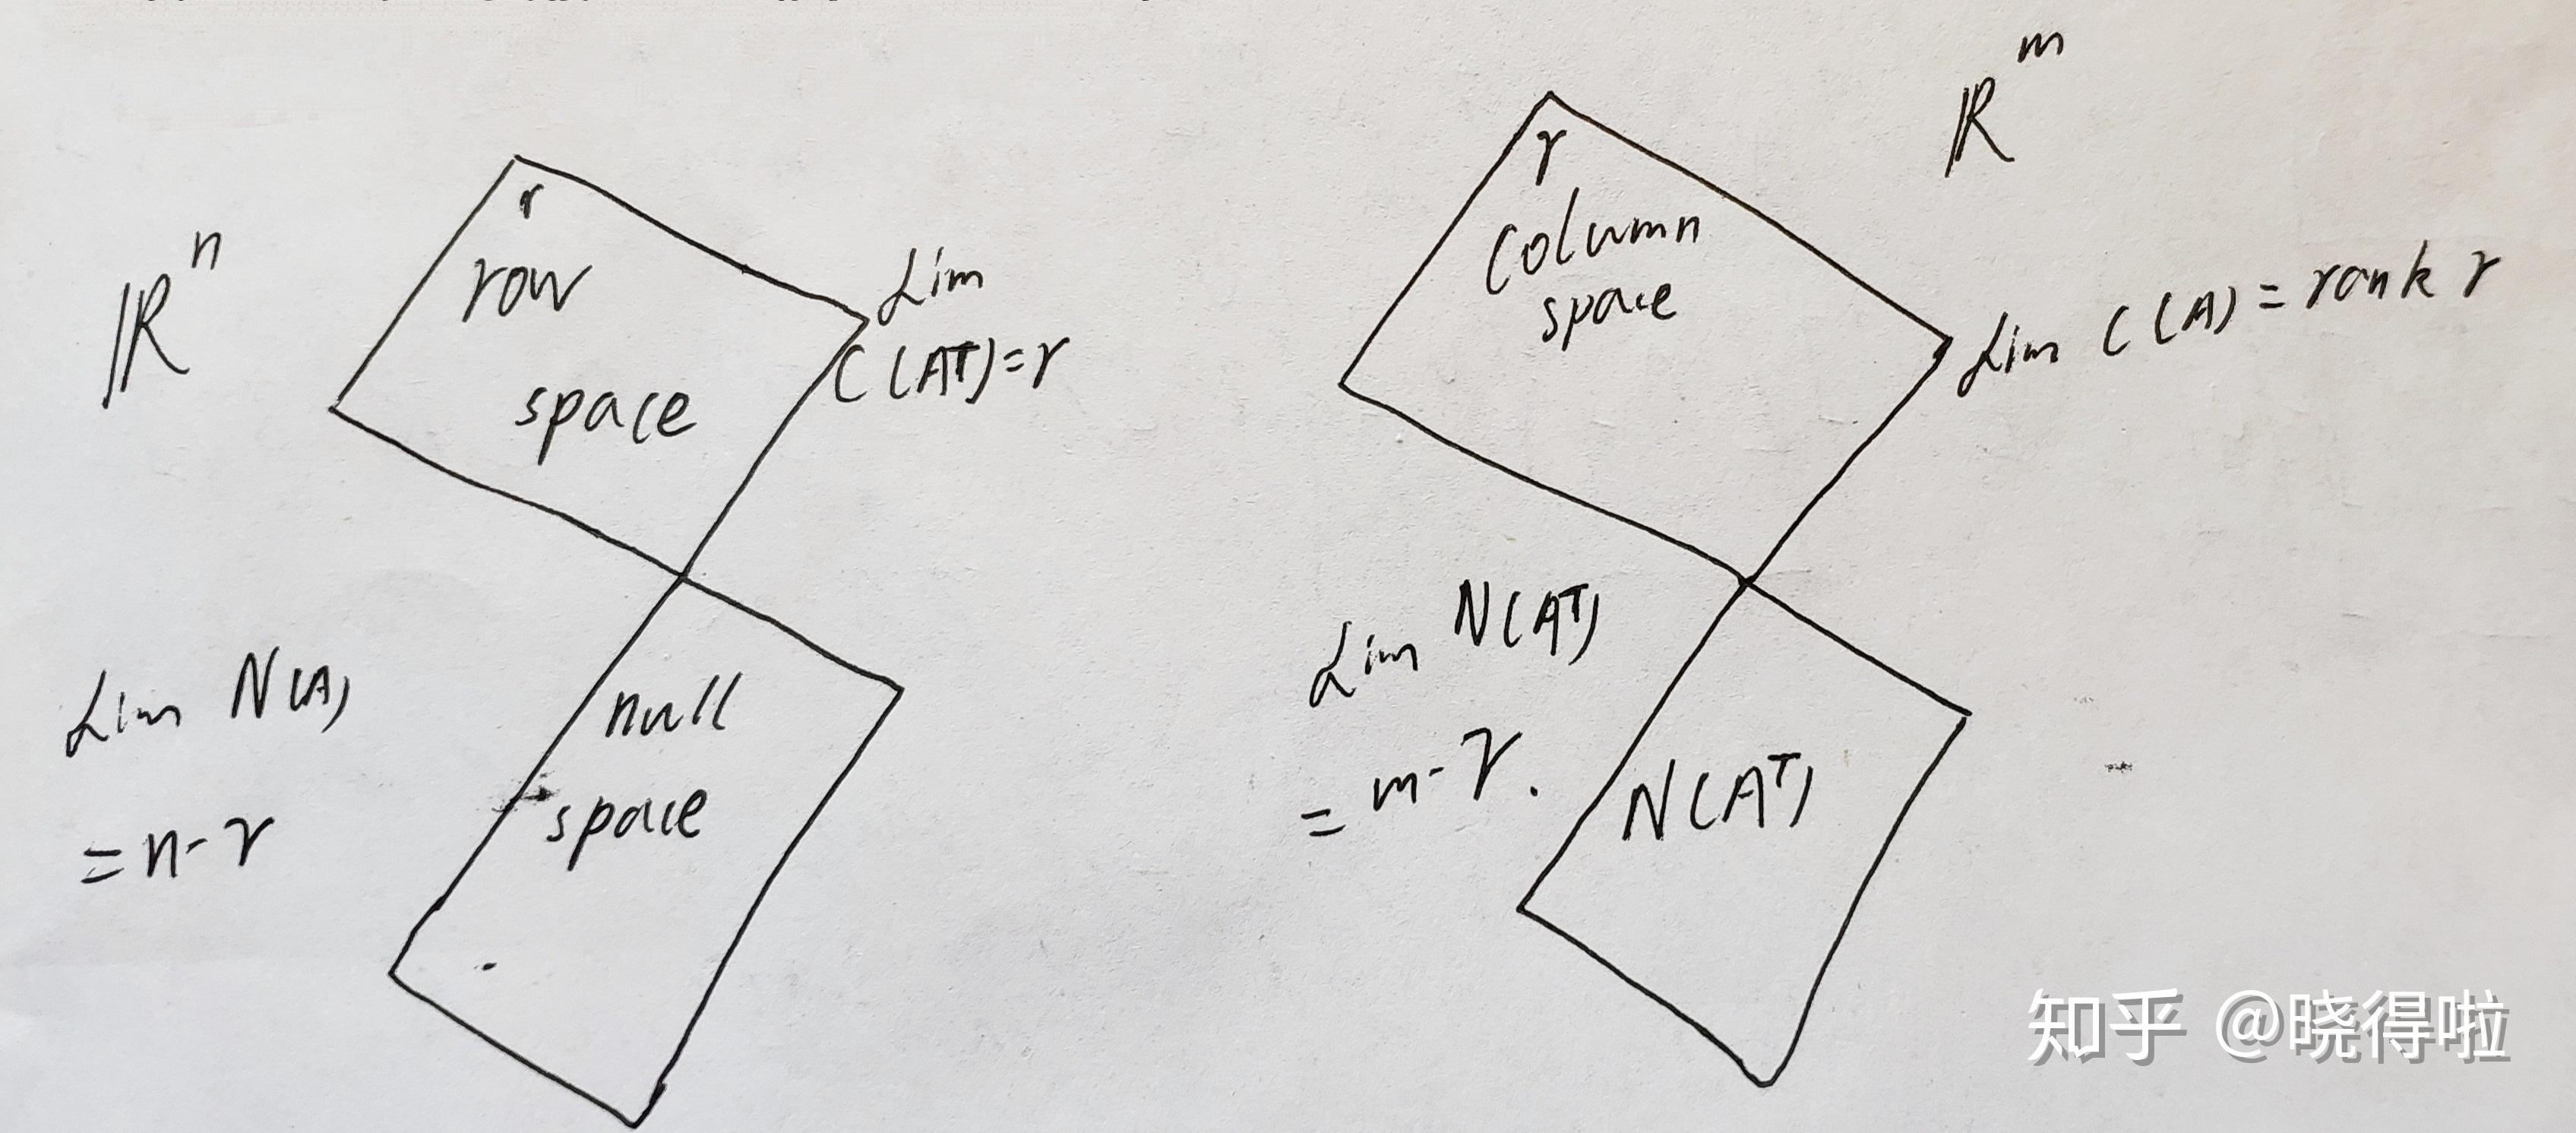 ℝⁿ
r
row
space
dim
C(Aᵀ)=r
dim N(A)
=n-r
null
space
ℝᵐ
r
column
space
dim C(A)=rank r
dim N(Aᵀ)
=m-r.
N(Aᵀ)
知乎 @晓得啦